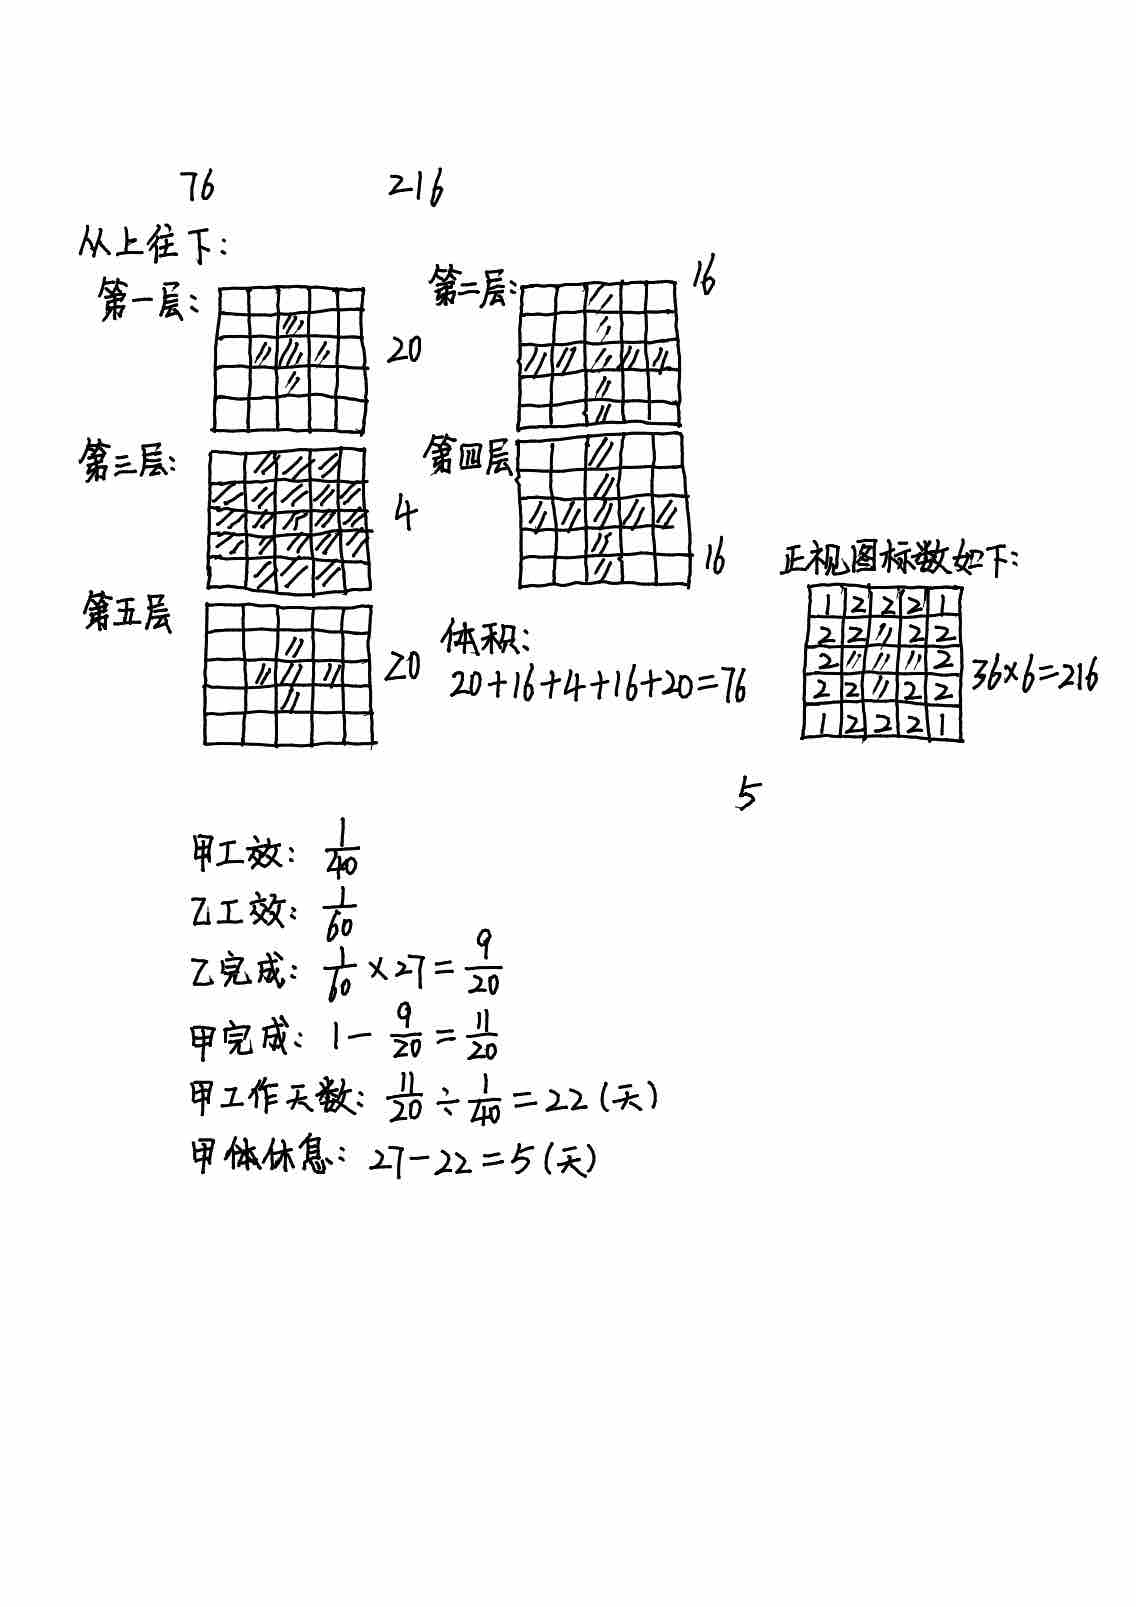 76 216
从上往下:
第一层: 20
第二层: 16
第三层: 4
第四层 16
第五层 20
体积:
20+16+4+16+20=76
正视图标数如下:
1 2 2 2 1
2 2 2 2
2 2
2 2 2 2
1 2 2 2 1
36×6=216
5
甲工效: 1/40
乙工效: 1/60
乙完成: 1/60×27=9/20
甲完成: 1-9/20=11/20
甲工作天数: 11/20÷1/40=22(天)
甲体休息: 27-22=5(天)